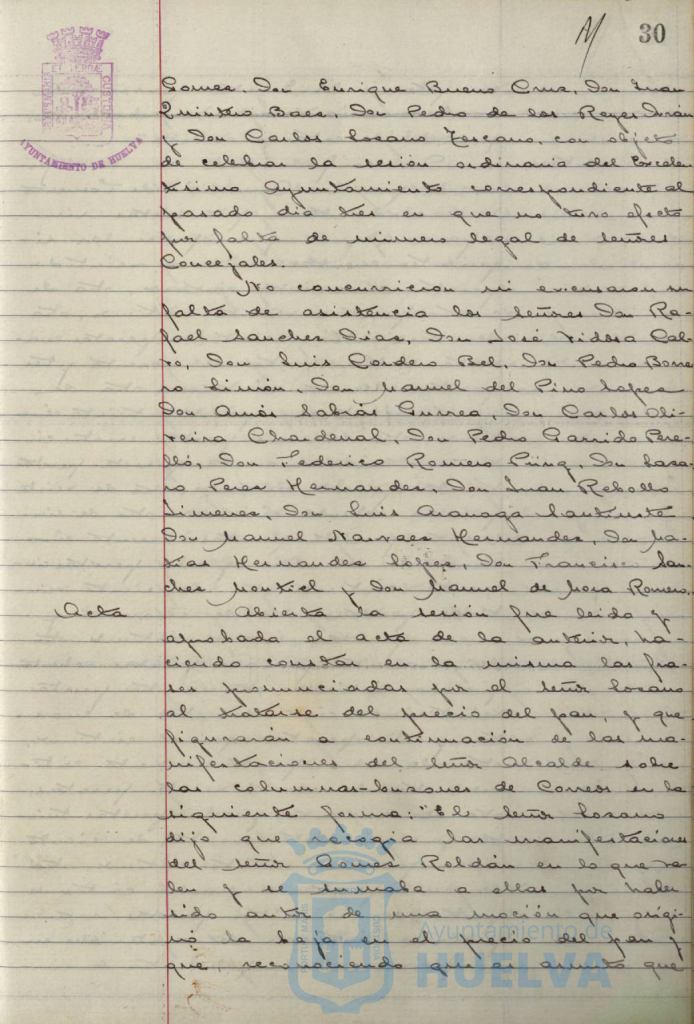 30
AYUNTAMIENTO DE HUELVA
Gomez, Don Enrique Bueno Cruz, Don Juan
Quintero Baez, Don Pedro de los Reyes Durán
y Don Carlos Lozano Toscano, con objeto
de celebrar la sesión ordinaria del Excelen
tísimo Ayuntamiento correspondiente al
pasado día tres en que no tuvo efecto
por falta de número legal de señores
Concejales.
No concurrieron ni excusaron su
falta de asistencia los señores Don Ra-
fael Sanchez Diaz, Don José Vidosa Cal-
vo, Don Luis Cordero Bel, Don Pedro Borre
ro Limón, Don Manuel del Pino Lopez
Don Amós Sabrás Gurrea, Don Carlos Oli-
veira Chardenal, Don Pedro Garrido Pere-
lló, Don Federico Romero Don Laza-
ro Perez Hernandez, Don Juan Rebollo
Jimenez, Don Luis
Don Manuel Narvaez Hernandez, Don Ma-
tías Hernandez López, Don Francisco San-
chez Montiel y Don Manuel de Mora Romero.
Acta
Abierta la sesión fue leida y
aprobada el acta de la anterior, ha-
ciendo constar en la misma las fra-
ses pronunciadas por el señor Lozano
al tratarse del precio del pan, y que
figurarán a continuación de las ma-
nifestaciones del señor Alcalde sobre
las columnas-buzones de Correos en la
siguiente forma: "El señor Lozano
dijo que recogía las manifestaciones
del señor Gomez Roldán en lo que va-
len y se sumaba a ellas por haber
sido autor de una moción que origi-
nó la baja en el precio del pan y
que, reconociendo que es asunto que
Ayuntamiento de
HUELVA